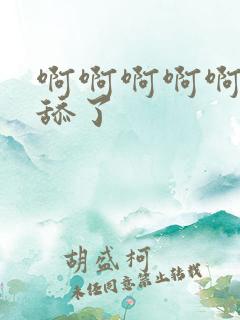 啊啊啊啊啊
舔了
胡盛柯
未经同意禁止转载